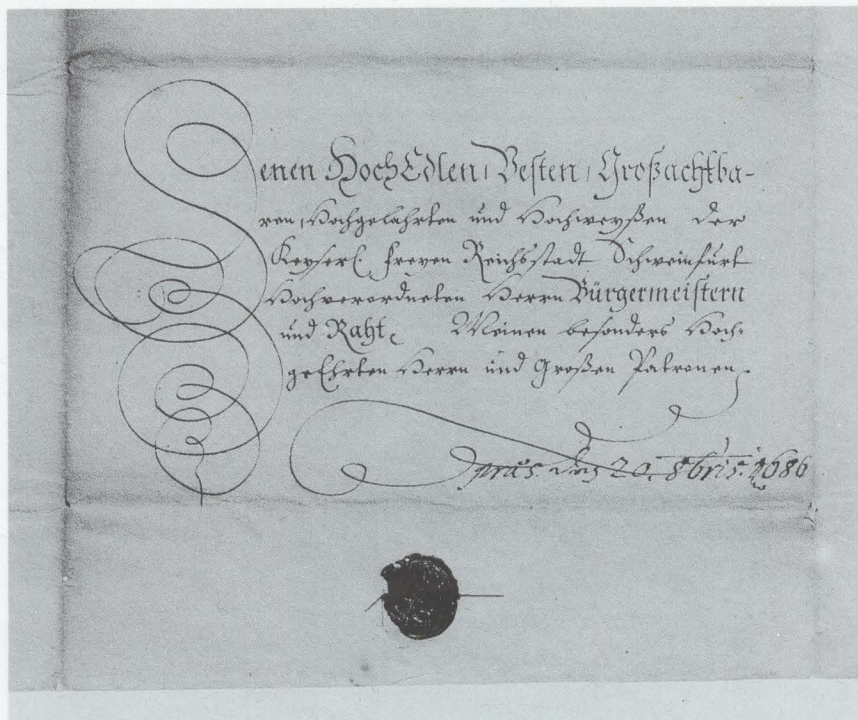 Denen HochEdlen, Vesten, Großachtba-
ren, Hochgelahrten und Hochweyßen der
Keyserl. freyen Reichsstadt Schweinfurt
Hochverordneten Herrn Bürgermeistern
und Raht. Meinen besonders Hoch-
geEhrten Herrn und Großen Patronen.
präs. den 20. 8bris. 1686